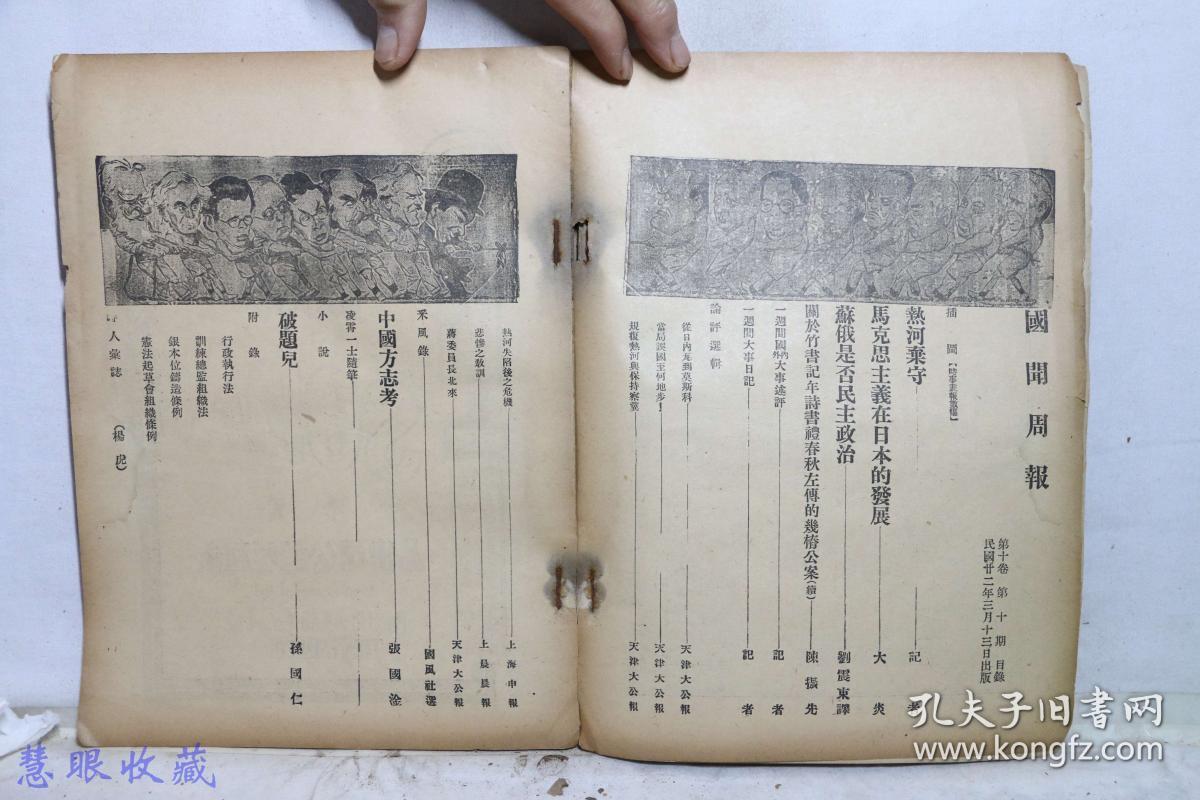 國聞周報
第十卷 第十期 目錄
民國廿二年三月十三日出版
插圖【時事
熱河棄守 記者
馬克思主義在日本的發展 大炎
蘇俄是否民主政治 劉震東譯
關於竹書記年詩書禮春秋左傳的幾樁公案(續) 陳振先
一週間國內外大事述評 記者
一週間大事日記 記者
論評選輯
從日內瓦到莫斯科 天津大公報
當局誤國至何地步! 天津大公報
規復熱河與保持察冀 天津大公報
熱河失陷後之危機 上海申報
悲慘之教訓 上晨晨報
蔣委員長北來 天津大公報
采風錄 國風社選
中國方志考 張國淦
凌霄一士隨筆
小說
破題兒 孫國仁
附錄
行政執行法
訓練總監組織法
銀本位鑄造條例
憲法起草會組織條例
人彙誌 (楊虎)
孔夫子旧书网
www.kongfz.com
慧眼收藏